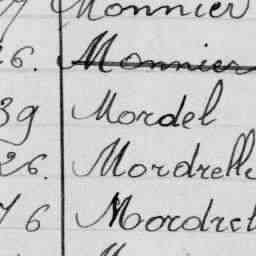 Monnier
26. Monnier
39 Mordel
26. Mordrelle
76 Mordrel